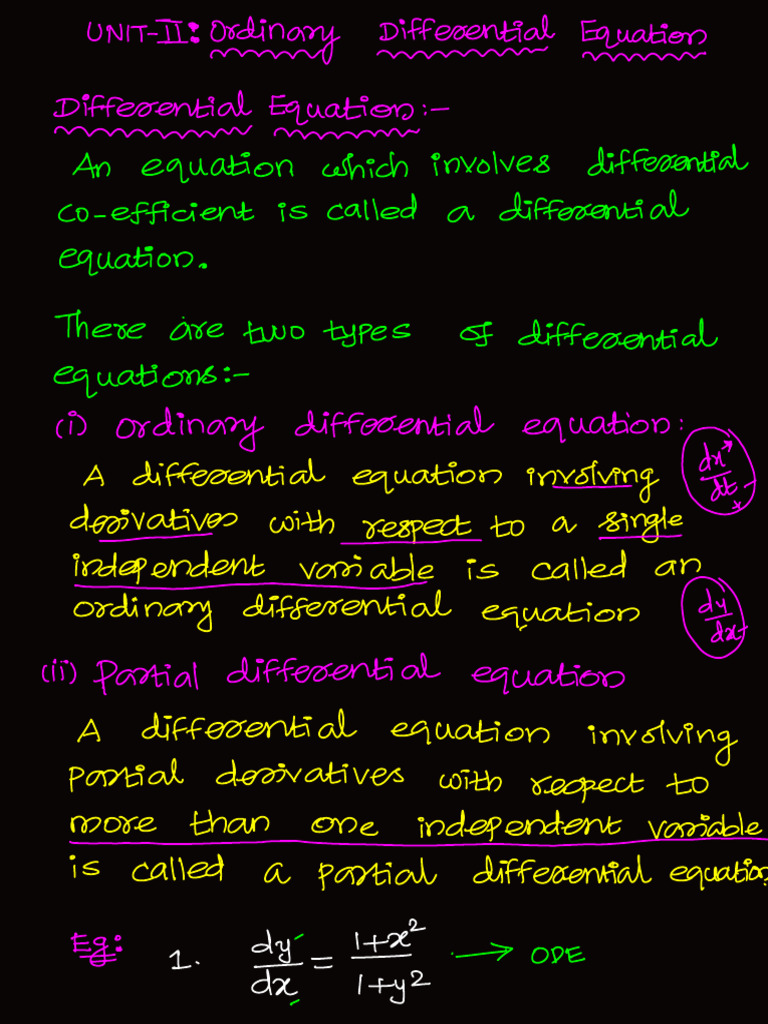 UNIT-II: Ordinary Differential Equation
Differential Equation:-
An equation which involves differential
co-efficient is called a differential
equation.
There are two types of differential
equations:-
(i) ordinary differential equation:
A differential equation involving
derivatives with respect to a single
independent variable is called an
ordinary differential equation
dx/dt
dy/dx
(ii) Partial differential equation
A differential equation involving
partial derivatives with respect to
more than one independent variable
is called a partial differential equation
Eg: 1. dy/dx = 1+x²/1+y² → ODE